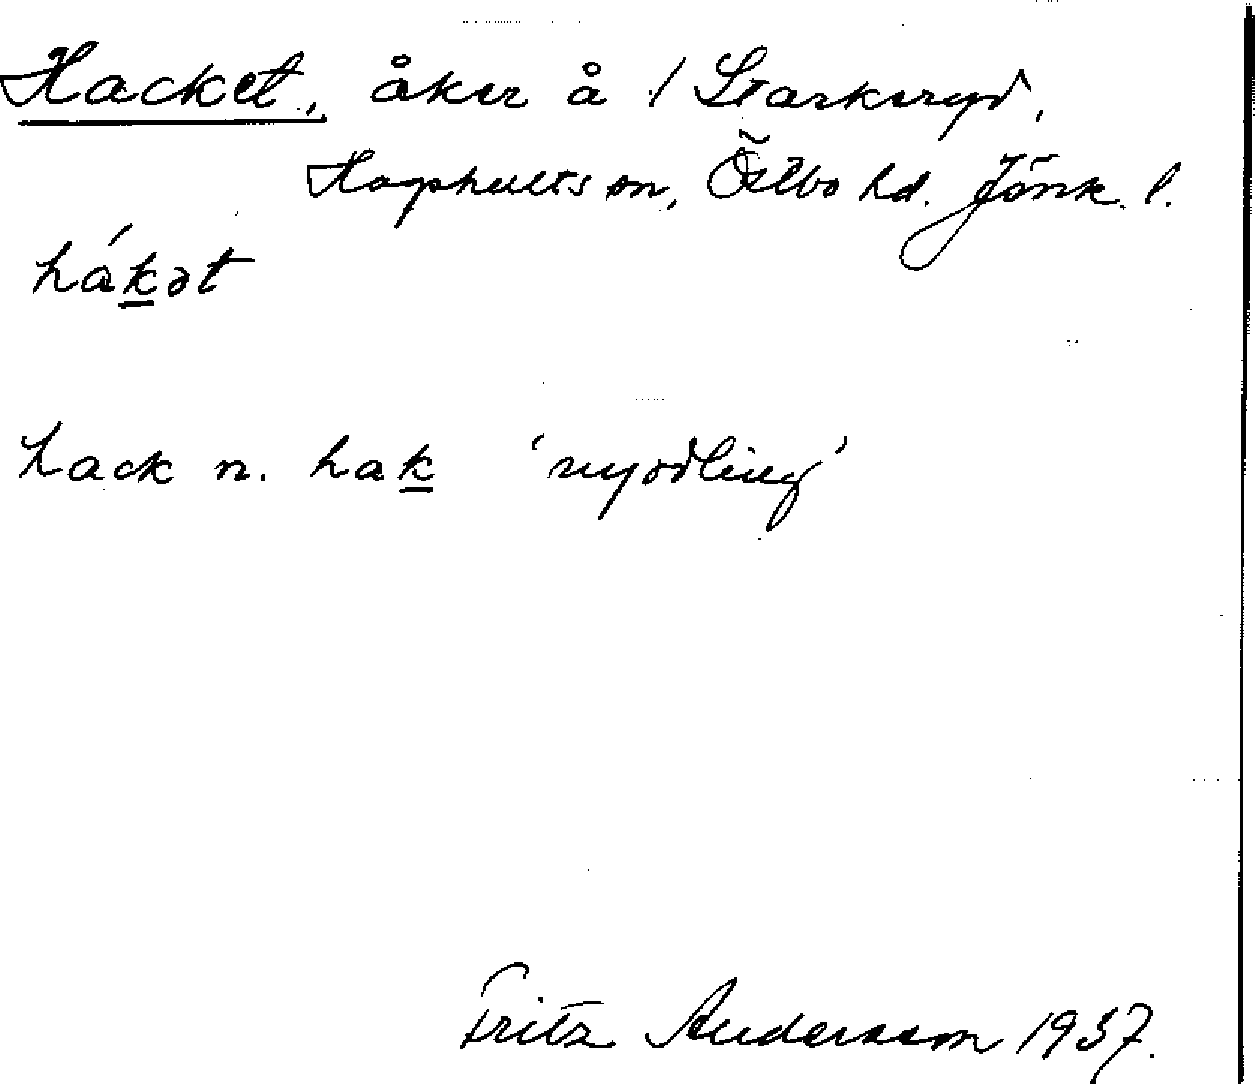 Hacket, åker å 1 Starkeryd,
Hagshults sn, Östbo hd. Jönk. l.
hákət
hack n. hak 'nyodling'
Fritz Andersson 1937.